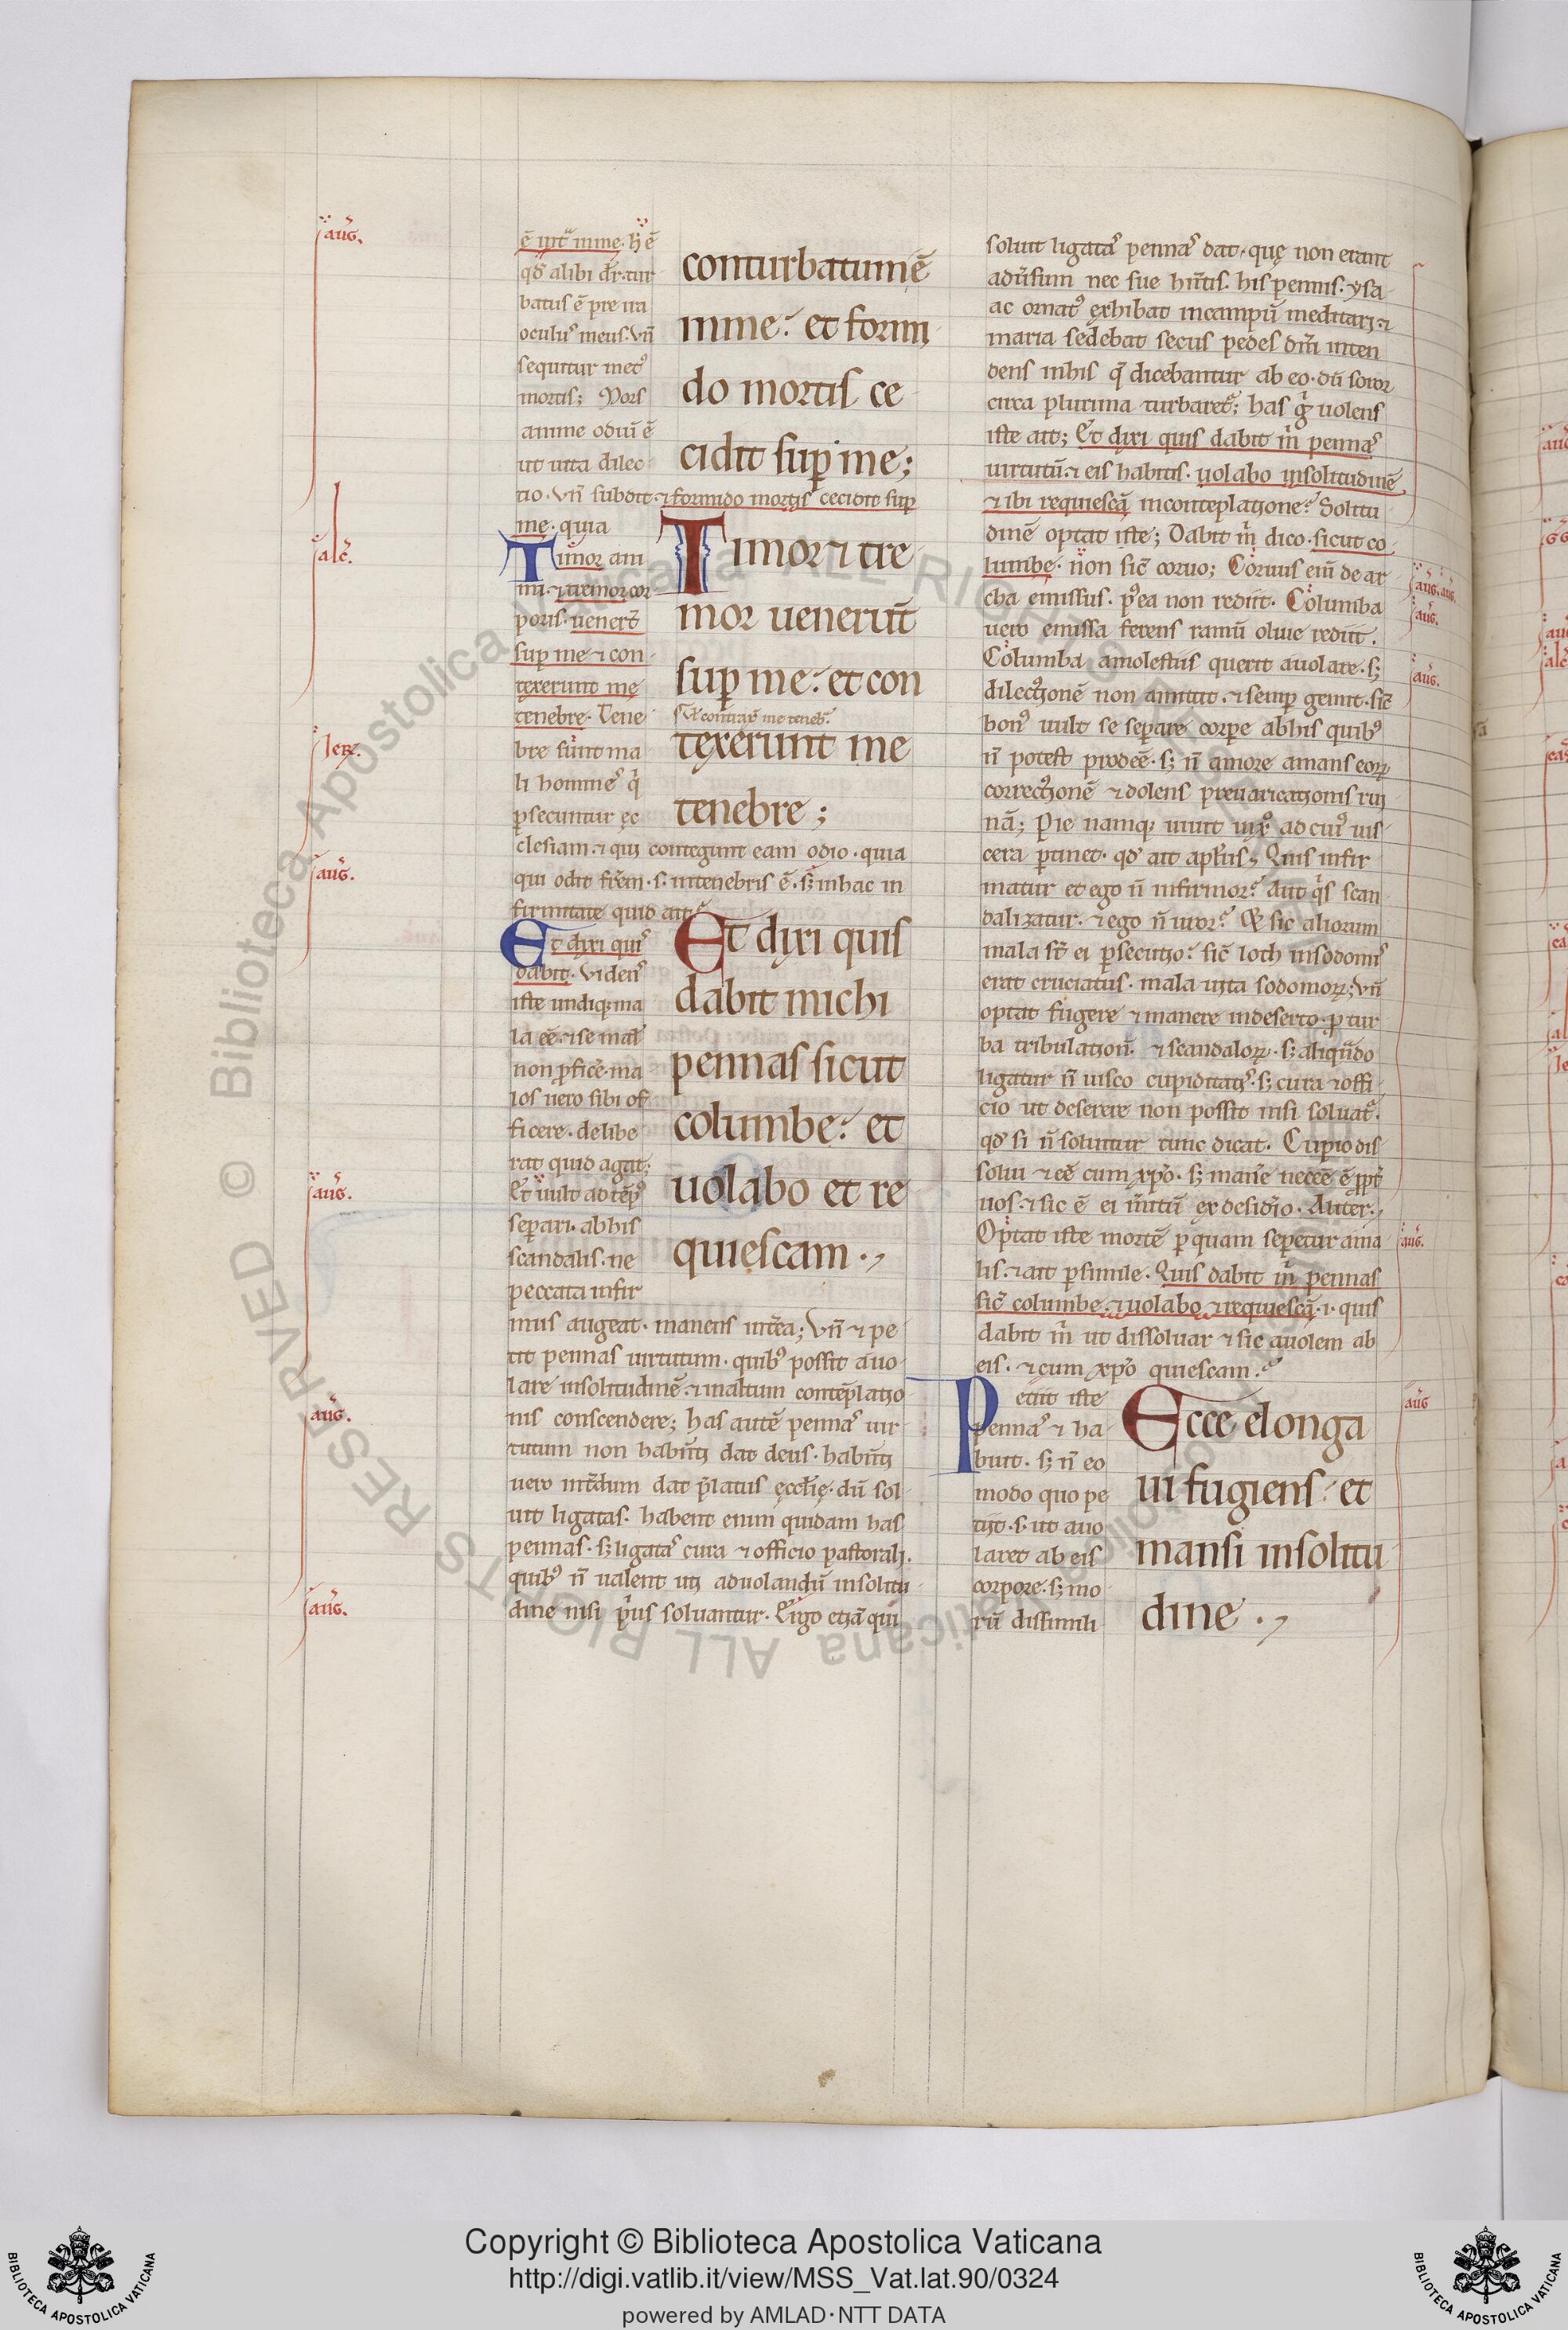 aug̃.
alc̃.
Ierꝛ.
aug̃.
aug̃.
aug̃.
aug̃.
ē int̃ in me. h̃ ē
qd̃ alibi dr̃. tur
batus ē pre ira
oculus meus. vñ
sequitur met9
mortis; Mors
anime odiũ ē
ut uita dilec
tio. Vñ subdit. ⁊ formido mortis cecidit sup̱
me. quia
Timor am
mi. ⁊ tremor cor
poris. uener̃t
sup̱ me ⁊ con
texerunt me
tenebre. Tene
bre sunt ma
li homines q̓
p̱secuntur ęc
clesiam. ⁊ qui contegunt eam odio. quia
qui odit fr̃em. s. in tenebris ē. sꝫ in hac in
firmitate quid ait?
Et dixi quis
dabit. Videns
iste undiqꝫ ma
la eē. ⁊ se mal̃
non ꝓfic̃e. ma
los uero sibi of
ficere. delibe
rat quid agat;
Et uult ad tẽp9
sep̱ari. ab his
scandalis. ne
peccata infir
mus augeat. manens int̃ea; Vñ ⁊ pe
tit pennas uirtutum. quib9 possit auo
lare in solitudinē. ⁊ in altum contẽplatio
nis conscendere; has autē pennas uir
tutum non habñtiꝫ dat deus. habñtiꝫ
uero int̃dum dat p̃latus ęccl̃ię. dũ sol
uit ligatas. habent enim quidam has
pennas. sꝫ ligatas cura ⁊ officio pastorali.
quib9 ñ ualent uti ad uolandũ in solitu
dine nisi p̓us soluantur. Ergo etiã qui
conturbatum ē
in me? et formi
do mortis ce
cidit sup̱ me;
Timor ⁊ tre
mor uenerũt
sup̱ me? et con
texerunt me
tenebre;
Et dixi quis
dabit michi
pennas sicut
columbe? et
uolabo et re
quiescam.,
soluit ligatas pennas dat. quę non erant
ad ũsum nec sue hñtis. his pennis. ysa
ac ornat9 exhibat in campũ meditari. ⁊
maria sedebat secus pedes dñi inten
dens in his q̃ dicebantur ab eo. dũ soror
circa plurima turbaret᷑; has g̓ uolens
iste ait; Et dixi quis dabit m̓ pennas
uirtutũ. ⁊ eis habitis. uolabo in solitudinē
⁊ ibi requiescã in conteplatione? Solitu
dinē optat iste; Dabit m̓ dico. sicut co
lumbe. non sic̃ coruo; Coruus eni᷑ de ar
cha emissus. p9ea non rediit. Columba
uero emissa ferens ramũ oliue rediit.
Columba a molestiis querit auolare. sꝫ
dilectionē non amittit. ⁊ semp̱ gemit. sic̃
bon9 uult se sep̱are corp̱e ab his quib9
ñ potest prodeē. sꝫ ñ amore amans eorꝝ
correctionē ⁊ dolens preuaricationis rui
nã; Pie namqꝫ uiuit in xp̃o ad cui9 uis
cera p̱tinet. qd̃ ait apl̃us; Quis infir
matur et ego ñ infirmor? Aut q̓s scan
dalizatur. ⁊ ego ñ uror? Et sic aliorum
mala st̃ ei p̱secutio? sic̃ loth in sodomis
erat cruciatus. mala uita sodomorꝝ; Vñ
optat fugere ⁊ manere in deserto. p̱ tur
ba tribulationũ. ⁊ scandalorꝝ. sꝫ aliqñdo
ligatur ñ uisco cupiditatis. sꝫ cura ⁊ offi
cio ut deserere non possit nisi soluat᷑.
qd̃ si ñ soluitur tunc dicat. Cupio dis
solui ⁊ eē cum xp̃o. sꝫ man̓e neceē ē ꝓpt̃
uos. ⁊ sic ē ei m̓itũ ex desid̓io. Aliter.,
Optat iste mortē p̱ quam sep̱etur a ma
lis. ⁊ ait p̱ simile. Quis dabit m̓ pennas
sic̃ columbe. ⁊ uolabo ⁊ requiescã. i. quis
dabit m̓ ut dissoluar ⁊ sic auolem ab
eis. ⁊ cum xp̃o quiescam?
Petiit iste
pennas ⁊ ha
buit. sꝫ ñ eo
modo quo pe
tiit. s. ut auo
laret ab eis
corpore. sꝫ mo
rũ dissimili
Ecce elonga
ui fugiens? et
mansi in solitu
dine.,
aug̃. aug̃.
aug̃.
aug̃.
aug̃.
aug̃
© Biblioteca Apostolica Vaticana ALL RIGHTS RESERVED
Copyright © Biblioteca Apostolica Vaticana
http://digi.vatlib.it/view/MSS_Vat.lat.90/0324
powered by AMLAD·NTT DATA
BIBLIOTECA APOSTOLICA VATICANA
BIBLIOTECA APOSTOLICA VATICANA